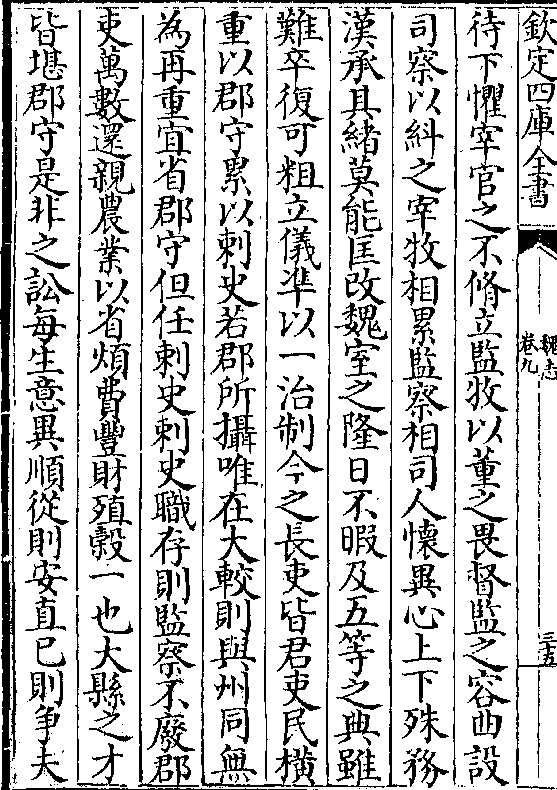 欽定四庫全書
魏志
卷九
三十五
待下懼宰官之不脩立監牧以董之畏督監之容曲設
司察以糾之宰牧相累監察相司人懷異心上下殊務
漢承其緒莫能匡改魏室之隆日不暇及五等之典雖
難卒復可粗立儀凖以一治制今之長吏皆君吏民橫
重以郡守累以刺史若郡所攝唯在大較則與州同無
為再重宜省郡守但任刺史刺史職存則監察不廢郡
吏萬數還親農業以省煩費豐財殖糓一也大縣之才
皆堪郡守是非之訟每生意異順從則安直已則爭夫